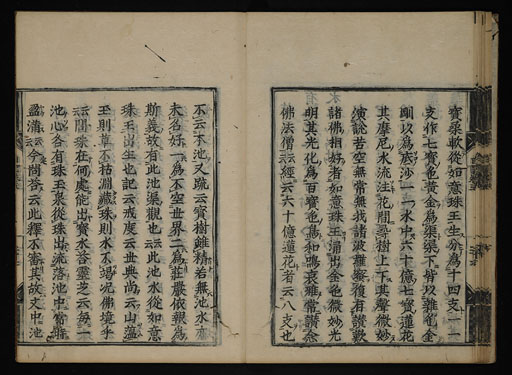 寶柔軟從如意珠王生分為十四支一一
支作七寶色黃金為渠渠下皆以雜色金
剛以為底沙一一水中六十億七寶蓮花
其摩尼水流注花間尋樹上下其聲微妙
演說苦空無常無我諸波羅蜜復有讚歎
諸佛相好者如意珠王涌出金色微妙光
明其光化為百寶色鳥和鳴哀雅常讚念
佛法僧云云經云六十億蓮花者云八支也
不云本池又疏云寶樹雖精若無池水亦
未名好一為不空世界二為莊嚴依報為
斯義故有此池渠觀也云云此池水從如意
珠王出生也記云戒度云世典尚云山蘊
玉則草不枯淵藏珠則水不竭況佛境乎
云云問渠在何處能出寶水答靈芝云每一
池心各有珠王泉從珠出流落池中常
盈滿云云今問答云此釋不審其故文中池